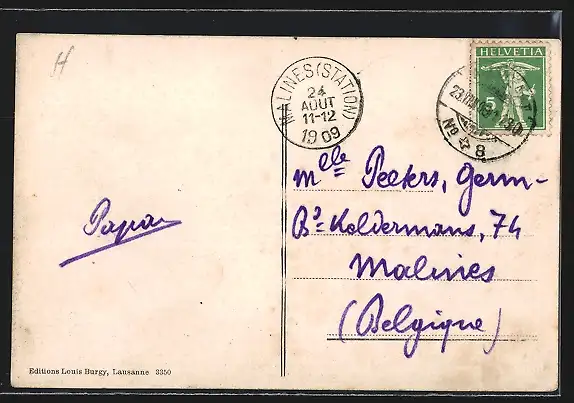 H
HELVETIA
5
MALINES (STATION)
24
AOUT
11-12
1909
23.VIII.09
No 8
Mlle Peeters, Germ-
Bd Keldermans, 74
Malines
(Belgique)
Papa
Editions Louis Burgy, Lausanne 3350